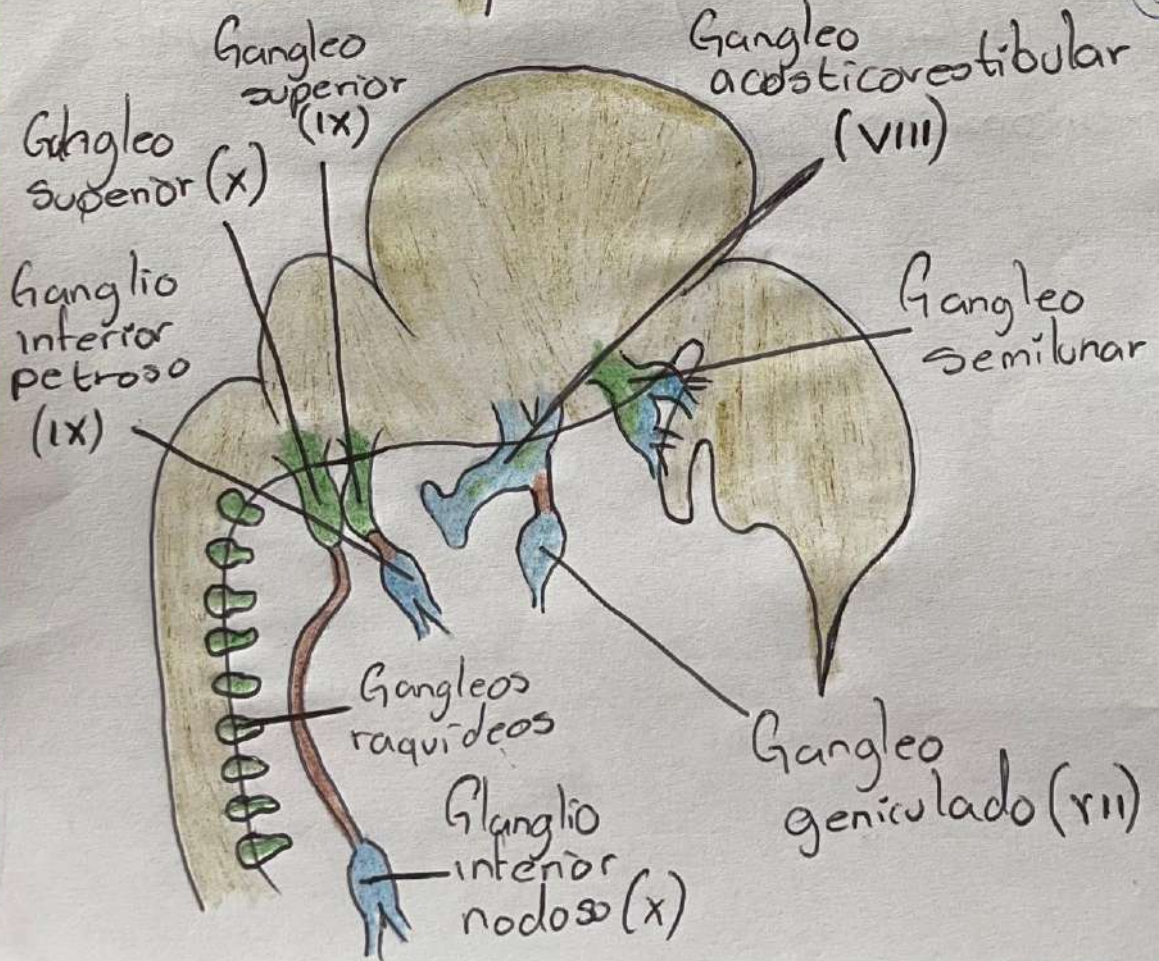 Gangleo
superior
(IX)
Gangleo
acósticovestibular
(VIII)
Gangleo
superior (X)
Ganglio
inferior
petroso
(IX)
Gangleo
semilunar
Gangleos
raquídeos
Gangleo
geniculado (VII)
Glanglio
inferior
nodoso (X)